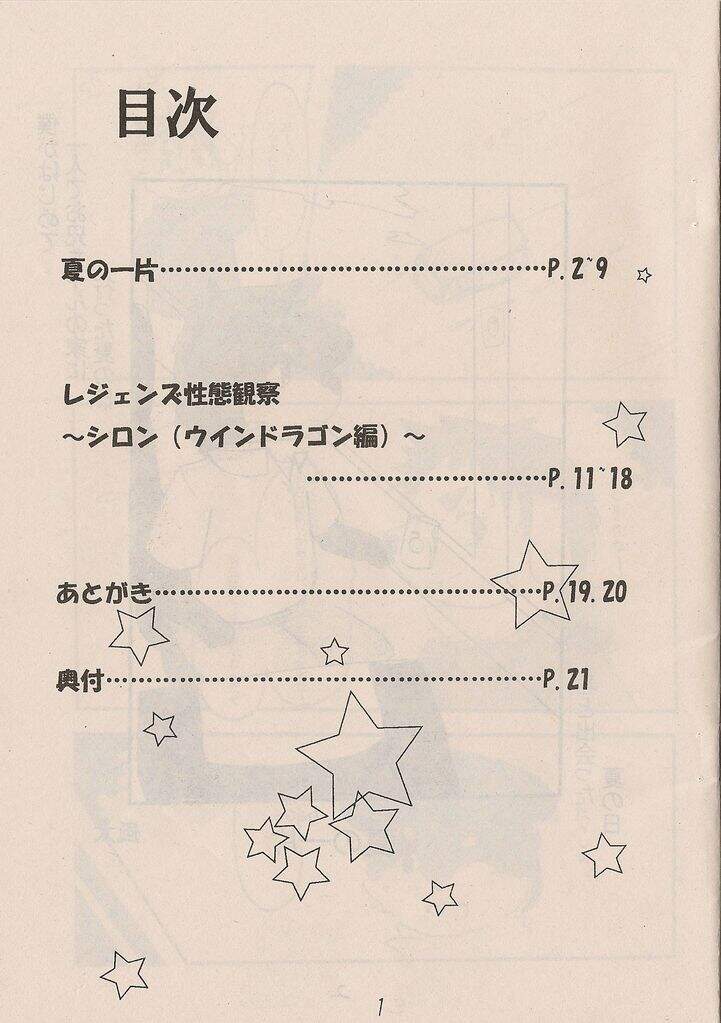 目次
夏の一片……………………………………P. 2~9
レジェンズ性態観察
~シロン（ウインドラゴン編）~
……………………P. 11~18
あとがき……………………………………P. 19. 20
奥付…………………………………………P. 21
1